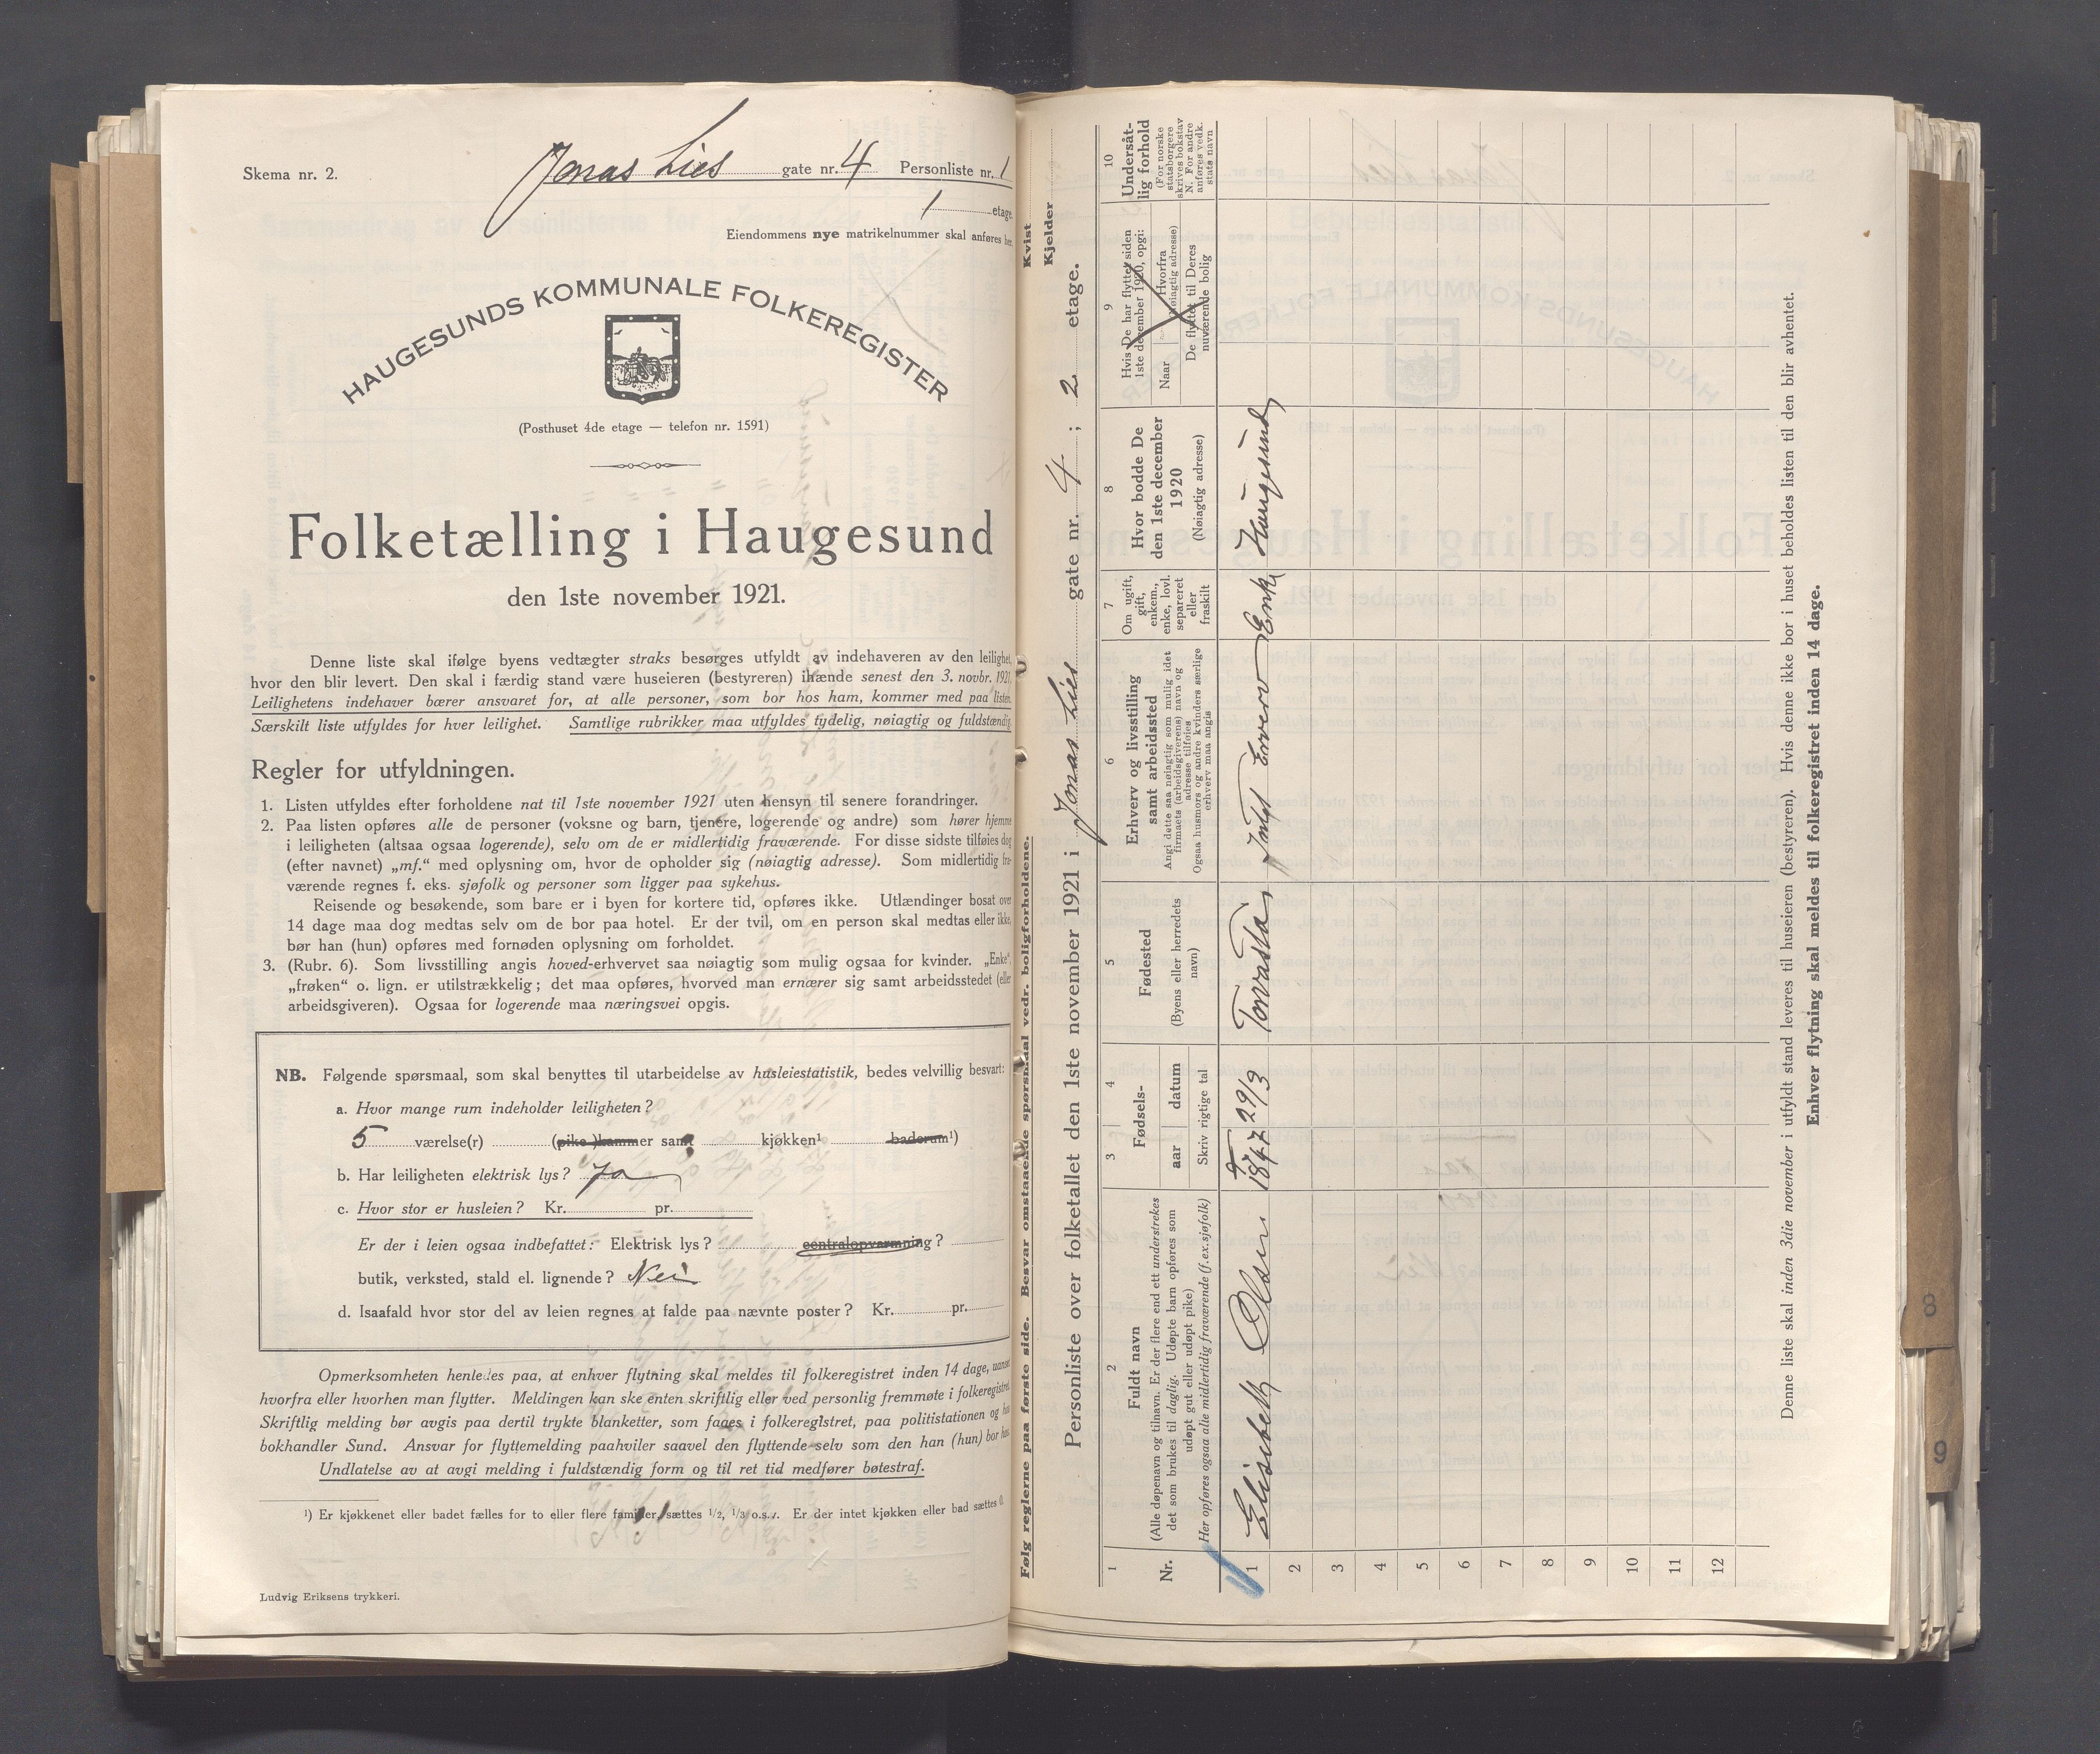 Skema nr. 2.
Jonas Lies gate nr. 4 Personliste nr. 1
1 etage.
Eiendommens nye matrikelnummer skal anføres her.
HAUGESUNDS KOMMUNALE FOLKEREGISTER
(Posthuset 4de etage — telefon nr. 1591)
Folketælling i Haugesund
den 1ste november 1921.
Denne liste skal ifølge byens vedtægter straks besørges utfyldt av indehaveren av den leilighet,
hvor den blir levert. Den skal i færdig stand være huseieren (bestyreren) ihænde senest den 3. novbr. 1921.
Leilighetens indehaver bærer ansvaret for, at alle personer, som bor hos ham, kommer med paa listen.
Særskilt liste utfyldes for hver leilighet. Samtlige rubrikker maa utfyldes tydelig, nøiagtig og fuldstændig.
Regler for utfyldningen.
1. Listen utfyldes efter forholdene nat til 1ste november 1921 uten hensyn til senere forandringer.
2. Paa listen opføres alle de personer (voksne og barn, tjenere, logerende og andre) som hører hjemme
i leiligheten (altsaa ogsaa logerende), selv om de er midlertidig fraværende. For disse sidste tilføies dog
(efter navnet) „mf.“ med oplysning om, hvor de opholder sig (nøiagtig adresse). Som midlertidig fra-
værende regnes f. eks. sjøfolk og personer som ligger paa sykehus.
Reisende og besøkende, som bare er i byen for kortere tid, opføres ikke. Utlændinger bosat over
14 dage maa dog medtas selv om de bor paa hotel. Er der tvil, om en person skal medtas eller ikke,
bør han (hun) opføres med fornøden oplysning om forholdet.
3. (Rubr. 6). Som livsstilling angis hoved-erhvervet saa nøiagtig som mulig ogsaa for kvinder. „Enke“,
„frøken“ o. lign. er utilstrækkelig; det maa opføres, hvorved man ernærer sig samt arbeidsstedet (eller
arbeidsgiveren). Ogsaa for logerende maa næringsvei opgis.
NB. Følgende spørsmaal, som skal benyttes til utarbeidelse av husleiestatistik, bedes velvillig besvart:
a. Hvor mange rum indeholder leiligheten?
5 værelse(r) (pike-)kammer samt kjøkken¹ baderum¹)
b. Har leiligheten elektrisk lys? Ja
c. Hvor stor er husleien? Kr. pr.
Er der i leien ogsaa indbefattet: Elektrisk lys? centralopvarmning?
butik, verksted, stald el. lignende? Nei
d. Isaafald hvor stor del av leien regnes at falde paa nævnte poster? Kr. pr.
Opmerksomheten henledes paa, at enhver flytning skal meldes til folkeregistret inden 14 dage, uanset
hvorfra eller hvorhen man flytter. Meldingen kan ske enten skriftlig eller ved personlig fremmøte i folkeregistret.
Skriftlig melding bør avgis paa dertil trykte blanketter, som faaes i folkeregistret, paa politistationen og hos
bokhandler Sund. Ansvar for flyttemelding paahviler saavel den flyttende selv som den han (hun) bor hos.
Undlatelse av at avgi melding i fuldstændig form og til ret tid medfører bøtestraf.
¹) Er kjøkkenet eller badet fælles for to eller flere familier, sættes 1/2, 1/3 o.s.v. Er der intet kjøkken eller bad sættes 0.
Ludvig Eriksens trykkeri.
Følg reglerne paa første side. Besvar omstaaende spørsmaal vedr. boligforholdene.
Kvist
Kjelder
Personliste over folketallet den 1ste november 1921 i Jonas Lies gate nr. 4 ; 2 etage.
1 2 3 4 5 6 7 8 9 10
Nr.
Fuldt navn
(Alle døpenavn og tilnavn. Er der flere end ett understrekes
det som brukes til daglig. Udøpte barn opføres som
udøpt gut eller udøpt pike)
Her opføres ogsaa alle midlertidig fraværende (f.ex.sjøfolk)
Fødsels-
aar datum
Skriv rigtige tal
Fødested
(Byens eller herredets
navn)
Erhverv og livsstilling
samt arbeidssted
Angi dette saa nøiagtig som mulig idet
firmaets (arbeidsgiverens) navn og
adresse tilføies
Ogsaa husmors og andre kvinders særlige
erhverv maa angis
Om ugift,
gift,
enkem.,
enke, lovl.
separeret
eller
fraskilt
Hvor bodde De
den 1ste december
1920
(Nøiagtig adresse)
Hvis De har flyttet siden
1ste december 1920, opgi:
Naar
Hvorfra
(nøiagtig adresse)
De flyttet til Deres
nuværende bolig
Undersåt-
lig forhold
(For norske
statsborgere
skrives bokstav
N. For andre
anføres vedk.
stats navn
1 Elisabeth Olsen 1847 29/3 Torvastad Intet Erverv Enke Haugesund
2
3
4
5
6
7
8
9
10
11
12
Denne liste skal inden 3die november i utfyldt stand leveres til huseieren (bestyreren). Hvis denne ikke bor i huset beholdes listen til den blir avhentet.
Enhver flytning skal meldes til folkeregistret inden 14 dage.
8
9